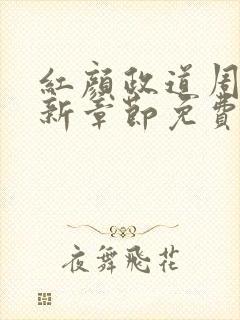 紅顏政道周
新章節免費
夜舞飛花